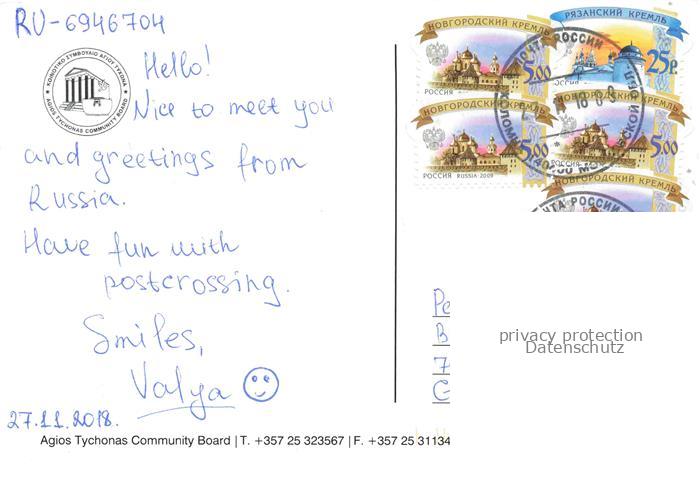 RU-6946704
ΚΟΙΝΟΤΙΚΟ ΣΥΜΒΟΥΛΙΟ ΑΓΙΟΥ ΤΥΧΩΝΑ
AGIOS TYCHONAS COMMUNITY BOARD
Hello!
Nice to meet you
and greetings from
Russia.
Have fun with
postcrossing.
Smiles,
Valya
27.11.2018.
Agios Tychonas Community Board | T. +357 25 323567 | F. +357 25 31134
НОВГОРОДСКИЙ КРЕМЛЬ
5.00
РОССИЯ
РЯЗАНСКИЙ КРЕМЛЬ
25р.
НОВГОРОДСКИЙ КРЕМЛЬ
5.00
РОССИЯ RUSSIA 2009
НОВГОРОДСКИЙ КРЕМЛЬ
5.00
РОССИЯ
НОВГОРОДСКИЙ КРЕМЛЬ
ПОЧТА РОССИИ
ПОЧТА РОССИИ
Pe
B
7
G
privacy protection
Datenschutz